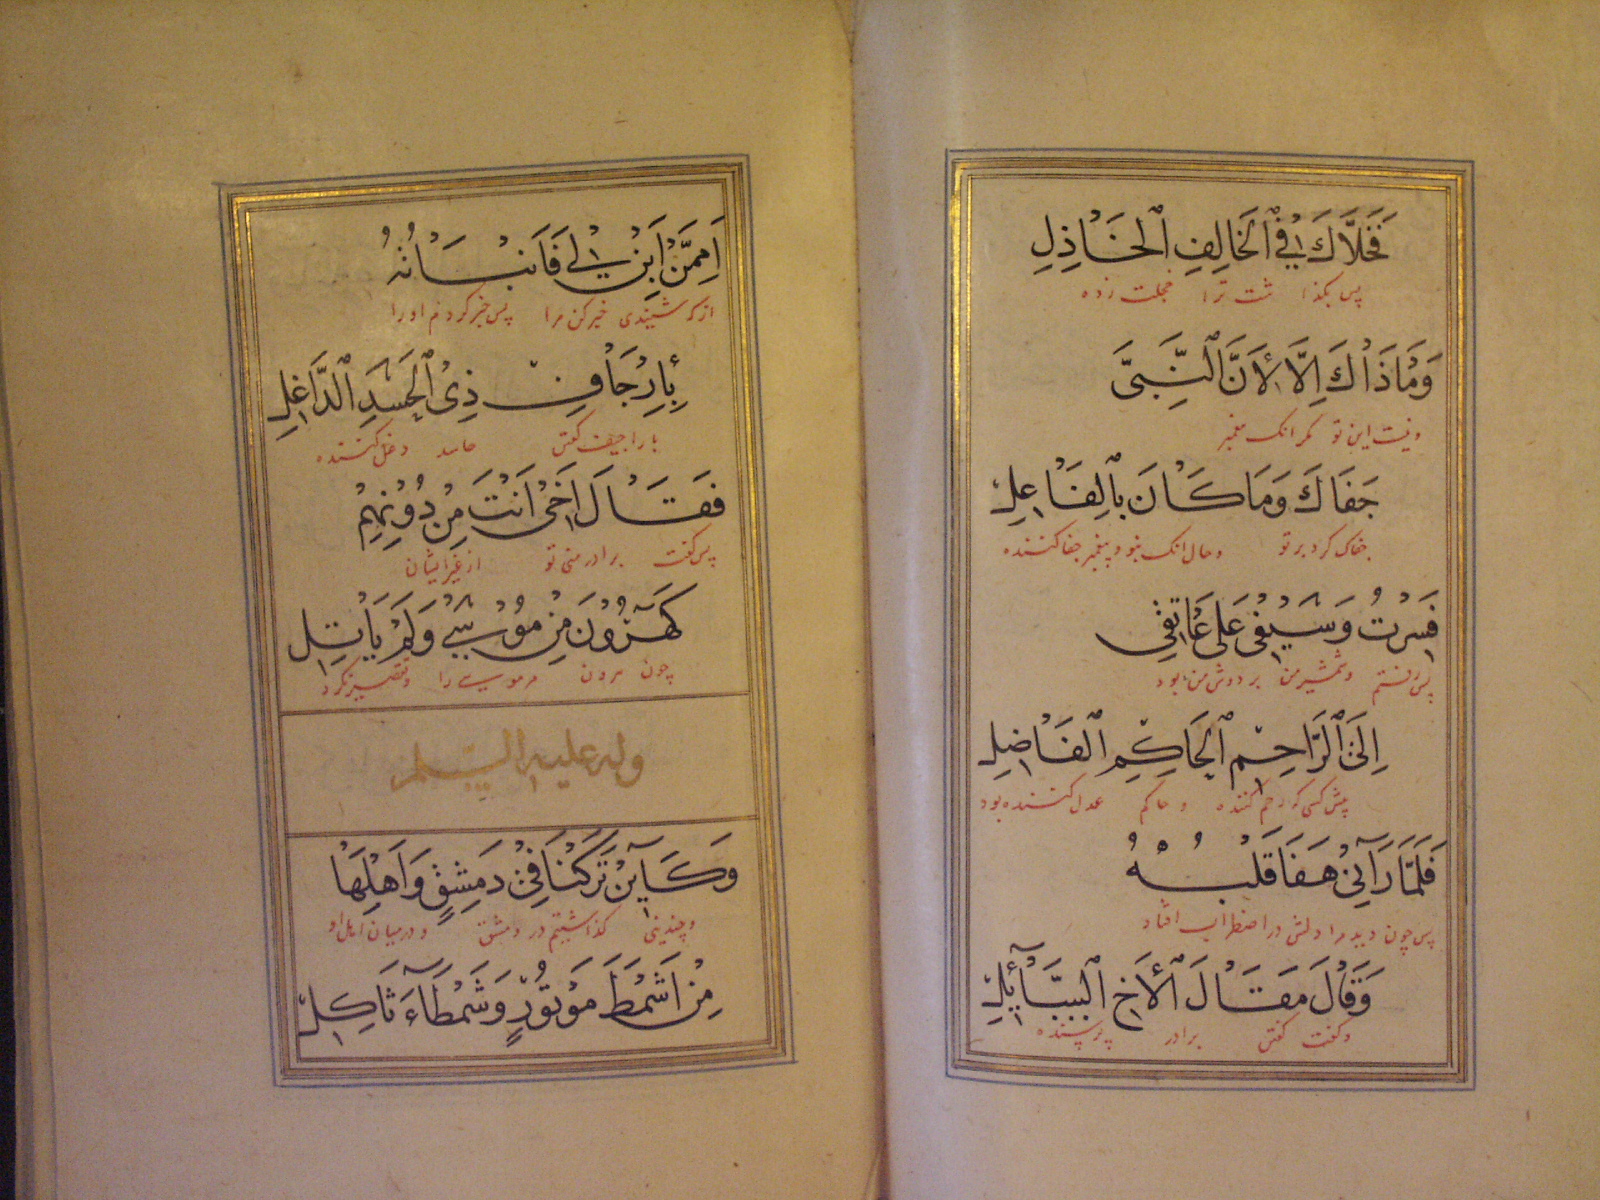 فَخَلَّاكَ فِي الْخَالِفِ الْخَاذِلِ
پس بگذاشت ترا خجلت زده
وَمَا ذَاكَ اِلَّا لِاَنَّ النَّبِيَّ
ونیست این تو مگر انک پیغمبر
جَفَاكَ وَمَا كَانَ بِالْفَاعِلِ
جفای کرد بر تو وحال انک نبود پیغمبر جفا کننده
فَسِرْتُ وَسَيْفِي عَلَى عَاتِقِي
پس رفتم وشمشیر من بر دوش من بود
اِلَى الرَّاحِمِ الْحَاكِمِ الْفَاضِلِ
پیش کسی که رحم کننده و حاکم عدل کننده بود
فَلَمَّا رَآنِي هَفَا قَلْبُهُ
پس چون دید مرا دلش در اضطراب افتاد
وَقَالَ مَقَالَ الْاَخِ السَّائِلِ
وگفت گفتن برادر پرسنده
اَمِمَّنْ اَبِنْ لِي فَاَنْبَأْتُهُ
از که شنیدی خبر کن مرا پس خبر کردم اورا
بِاِرْجَافِ ذِي الْحَسَدِ الدَّاغِلِ
باراجیف گفتن حاسد دغل کننده
فَقَالَ اَخِي اَنْتَ مِنْ دُونِهِمْ
پس گفت برادر منی تو از غیر ایشان
كَهَرُونَ مِنْ مُوسَى وَلَمْ يَأْتَلِ
چون هرون مر موسی را وتقصیر نکرد
وله عليه السلم
وَكَايِنْ تَرَكْنَا فِي دِمَشْقٍ وَاَهْلِهَا
وچندینی گذاشتیم در دمشق و درمیان اهل او
مِنْ اَشْمَطَ مَوْتُورٍ وَشَمْطَآءَ ثَاكِلِ